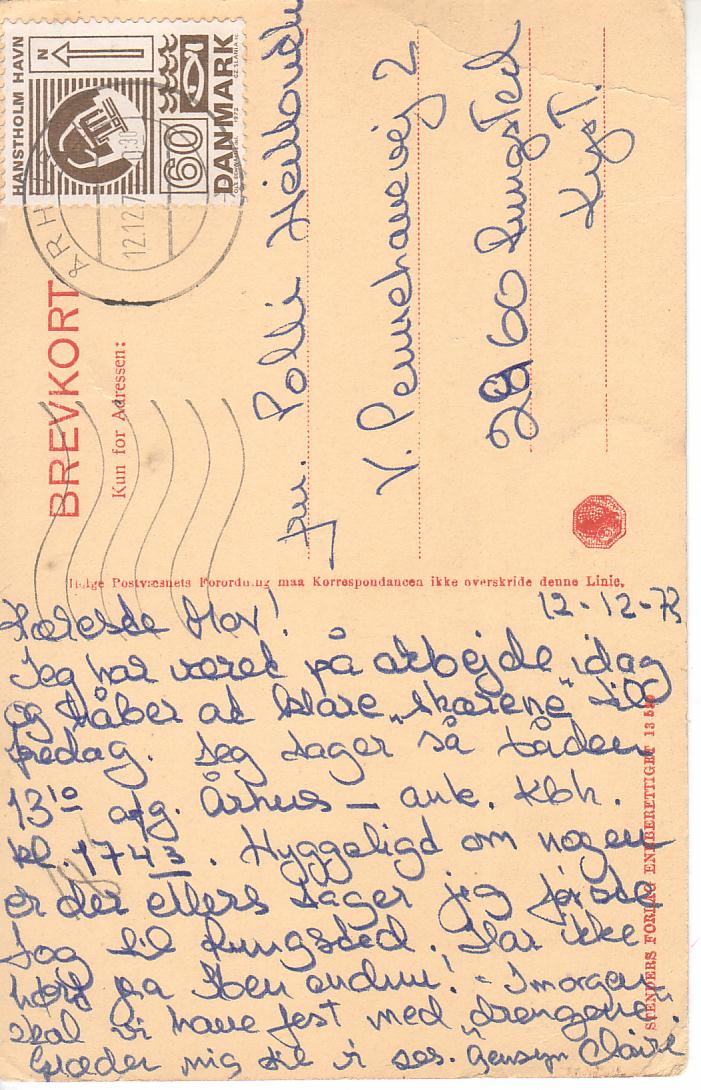 HANSTHOLM HAVN
N
60
DANMARK
ÅRH
12.12.7
BREVKORT
Kun for Adressen:
Fru. Polli
V. Pennehavevej 2
2960 Rungsted
Kyst.
Ifølge Postvæsnets Forordning maa Korrespondancen ikke overskride denne Linie.
12-12-73
Kæreste Mor!
Jeg har været på arbejde idag
og håber at klare „skærene" til
fredag. Jeg tager så båden
13¹⁰ afg. Århus – ank. Kbh.
kl. 1743. Hyggeligd om nogen
er der ellers tager jeg første
tog til Rungsted. Har ikke
hørt fra Iben endnu! - Imorgen
skal vi have fest med „drengene".
Glæder mig til vi ses. Gensyn Claire
STENDERS FORLAG ENEBERETTIGET 13